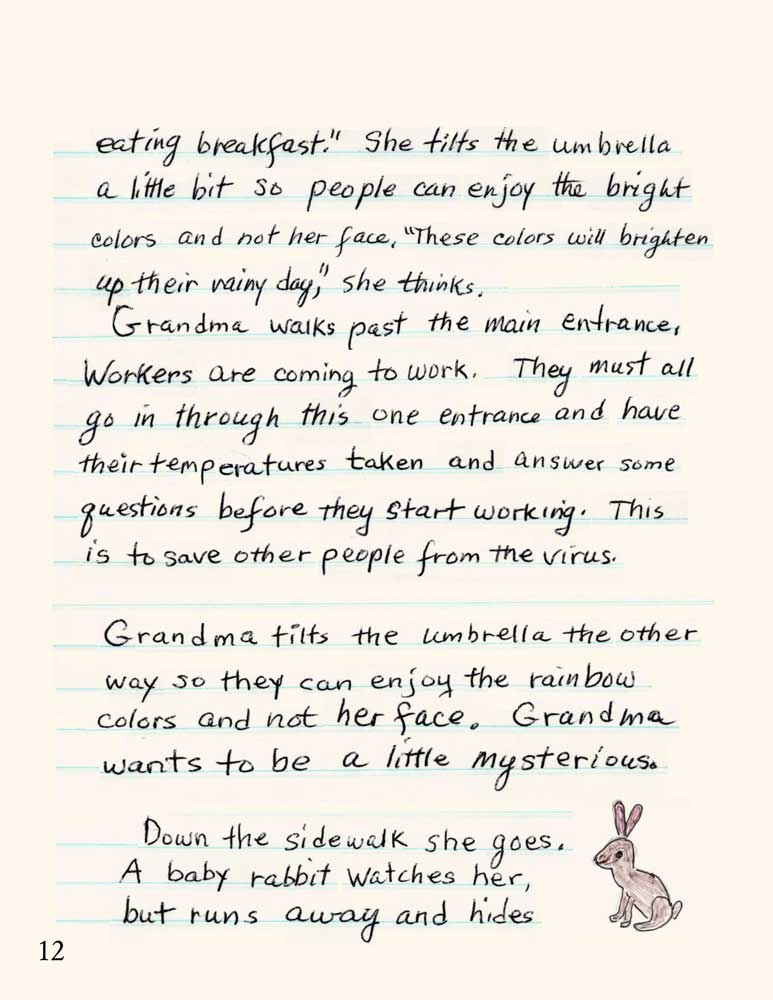 eating breakfast." She tilts the umbrella
a little bit so people can enjoy the bright
colors and not her face. "These colors will brighten
up their rainy day," she thinks.
Grandma walks past the main entrance.
Workers are coming to work. They must all
go in through this one entrance and have
their temperatures taken and answer some
questions before they start working. This
is to save other people from the virus.
Grandma tilts the umbrella the other
way so they can enjoy the rainbow
colors and not her face. Grandma
wants to be a little mysterious.
Down the sidewalk she goes.
A baby rabbit watches her,
but runs away and hides
12